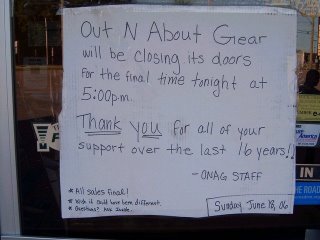 Out N About Gear
will be closing its doors
for the final time tonight at
5:00p.m.
Thank you for all of your
support over the last 16 years!!
- ONAG STAFF
* All sales final!
* Wish it could have been different.
* Questions? Ask Inside.
Sunday, June 18, 06
IN
THE ROAD